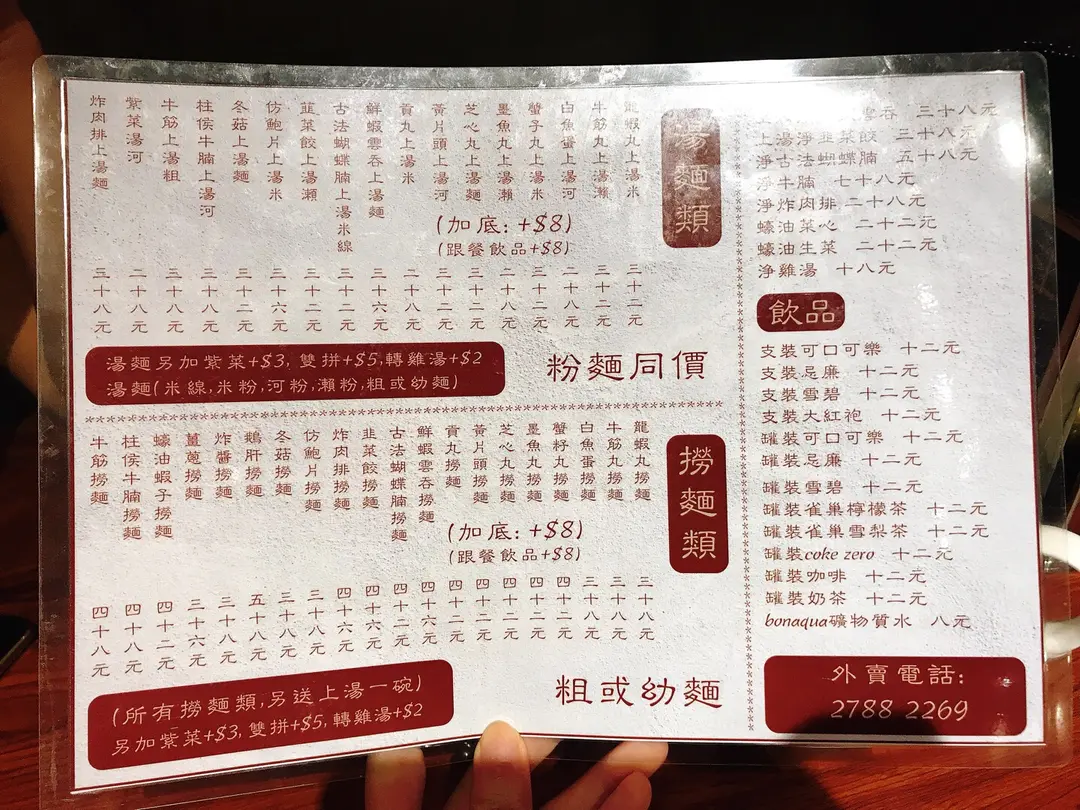 湯麵類
龍蝦丸上湯米 三十二元
牛筋丸上湯瀨 三十二元
白魚蛋上湯河 二十八元
蟹子丸上湯米 三十二元
墨魚丸上湯瀨 二十八元
芝心丸上湯麵 三十二元
黃片頭上湯河 三十二元
貢丸上湯米 二十八元
鮮蝦雲吞上湯麵 三十二元
古法蝴蝶腩上湯米線 三十二元
韮菜餃上湯瀨 三十二元
仿鮑片上湯米 三十六元
冬菇上湯麵 三十二元
柱侯牛腩上湯河 三十八元
牛筋上湯粗 三十八元
紫菜湯河 二十八元
炸肉排上湯麵 三十八元
(加底: +$8)
(跟餐飲品+$8)
粉麵同價
湯麵另加紫菜+$3, 雙拼+$5,轉雞湯+$2
湯麵(米線,米粉,河粉,瀨粉,粗或幼麵)
撈麵類
龍蝦丸撈麵 三十八元
牛筋丸撈麵 三十八元
白魚蛋撈麵 三十八元
蟹籽丸撈麵 四十二元
墨魚丸撈麵 四十二元
芝心丸撈麵 四十二元
黃片頭撈麵 四十二元
貢丸撈麵 四十二元
鮮蝦雲吞撈麵 四十六元
古法蝴蝶腩撈麵 四十二元
韮菜餃撈麵 四十六元
炸肉排撈麵 四十六元
仿鮑片撈麵 三十八元
冬菇撈麵 三十八元
鵝肝撈麵 五十八元
炸醬撈麵 三十八元
薑蔥撈麵 三十六元
蠔油蝦子撈麵 四十二元
柱侯牛腩撈麵 四十八元
牛筋撈麵 四十八元
(加底: +$8)
(跟餐飲品+$8)
粗或幼麵
(所有撈麵類,另送上湯一碗)
另加紫菜+$3, 雙拼+$5, 轉雞湯+$2
雲吞 三十八元
上湯淨韮菜餃 三十八元
淨古法蝴蝶腩 五十八元
淨牛腩 七十八元
淨炸肉排 二十八元
蠔油菜心 二十二元
蠔油生菜 二十二元
淨雞湯 十八元
飲品
支裝可口可樂 十二元
支裝忌廉 十二元
支裝雪碧 十二元
支裝大紅袍 十二元
罐裝可口可樂 十二元
罐裝忌廉 十二元
罐裝雪碧 十二元
罐裝雀巢檸檬茶 十二元
罐裝雀巢雪梨茶 十二元
罐裝coke zero 十二元
罐裝咖啡 十二元
罐裝奶茶 十二元
bonaqua礦物質水 八元
外賣電話:
2788 2269